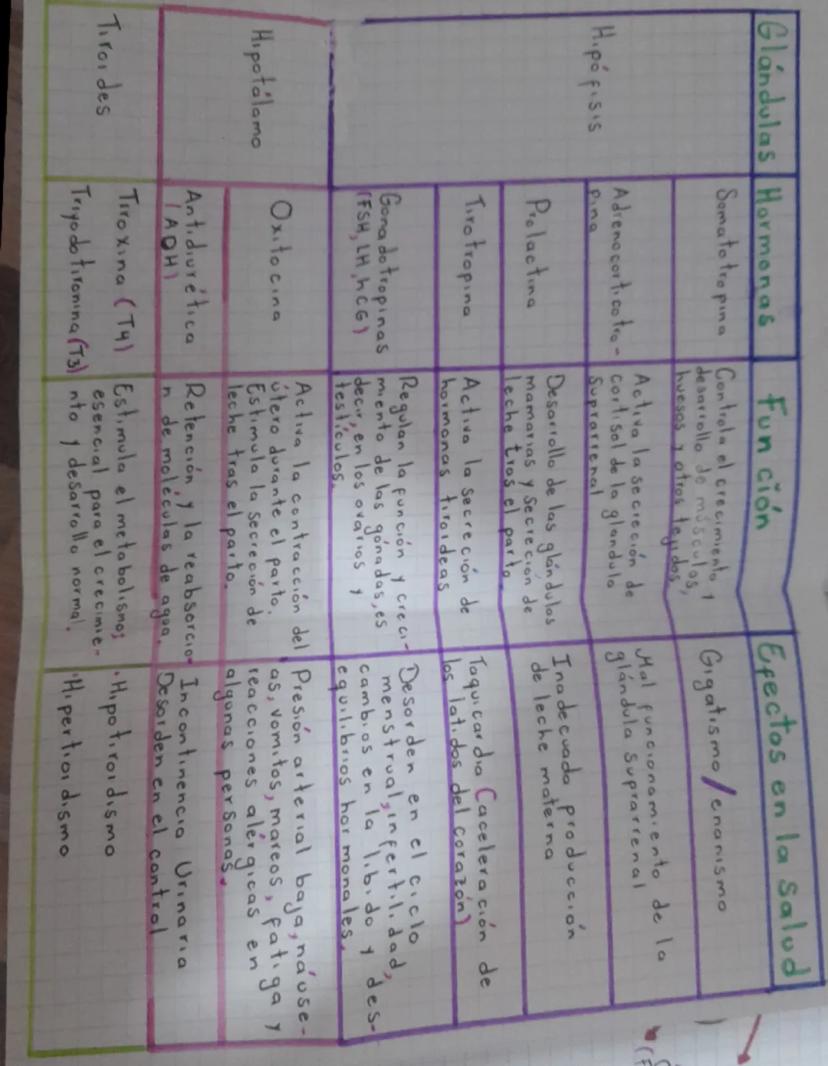 Glándulas Hormonas Función Efectos en la Salud
Hipófisis
Somatotropina
Controla el crecimiento y
desarrollo de músculos,
huesos y otros tejidos,
Gigatismo/enanismo
Adrenocorticotro-
pina
Activa la secreción de
cortisol de la glandula
suprarrenal
Mal funcionamiento de la
glándula suprarrenal
Prolactina
Desarollo de las glándulas
mamarias y secreción de
leche tras el parto.
Inadecuada producción
de leche materna
Tirotropina
Activa la secreción de
hormonas tiroideas
Taquicardia (aceleración de
los latidos del corazón)
Gonadotropinas
(FSH, LH, hCG)
Regulan la función y creci-
miento de las gónadas, es
decir, en los ovarios y
testículos.
Desorden en el ciclo
menstrual, infertilidad,
cambios en la libido y des-
equilibrios hormonales.
Hipotálamo
Oxitocina
Activa la contracción del
útero durante el parto.
Estimula la secreción de
leche tras el parto.
Presión arterial baja, náuse-
as, vomitos, mareos, fatiga y
reacciones alérgicas en
algunas personas.
Antidiurética
(ADH)
Retención y la reabsorcio-
n de moléculas de agua.
Incontinencia Urinaria
Desorden en el control
Tiroides
Tiroxina (T4)
Triyodotironina (T3)
Estimula el metabolismo;
esencial para el crecimie-
nto y desarrollo normal.
·Hipotiroidismo
·Hipertioidismo